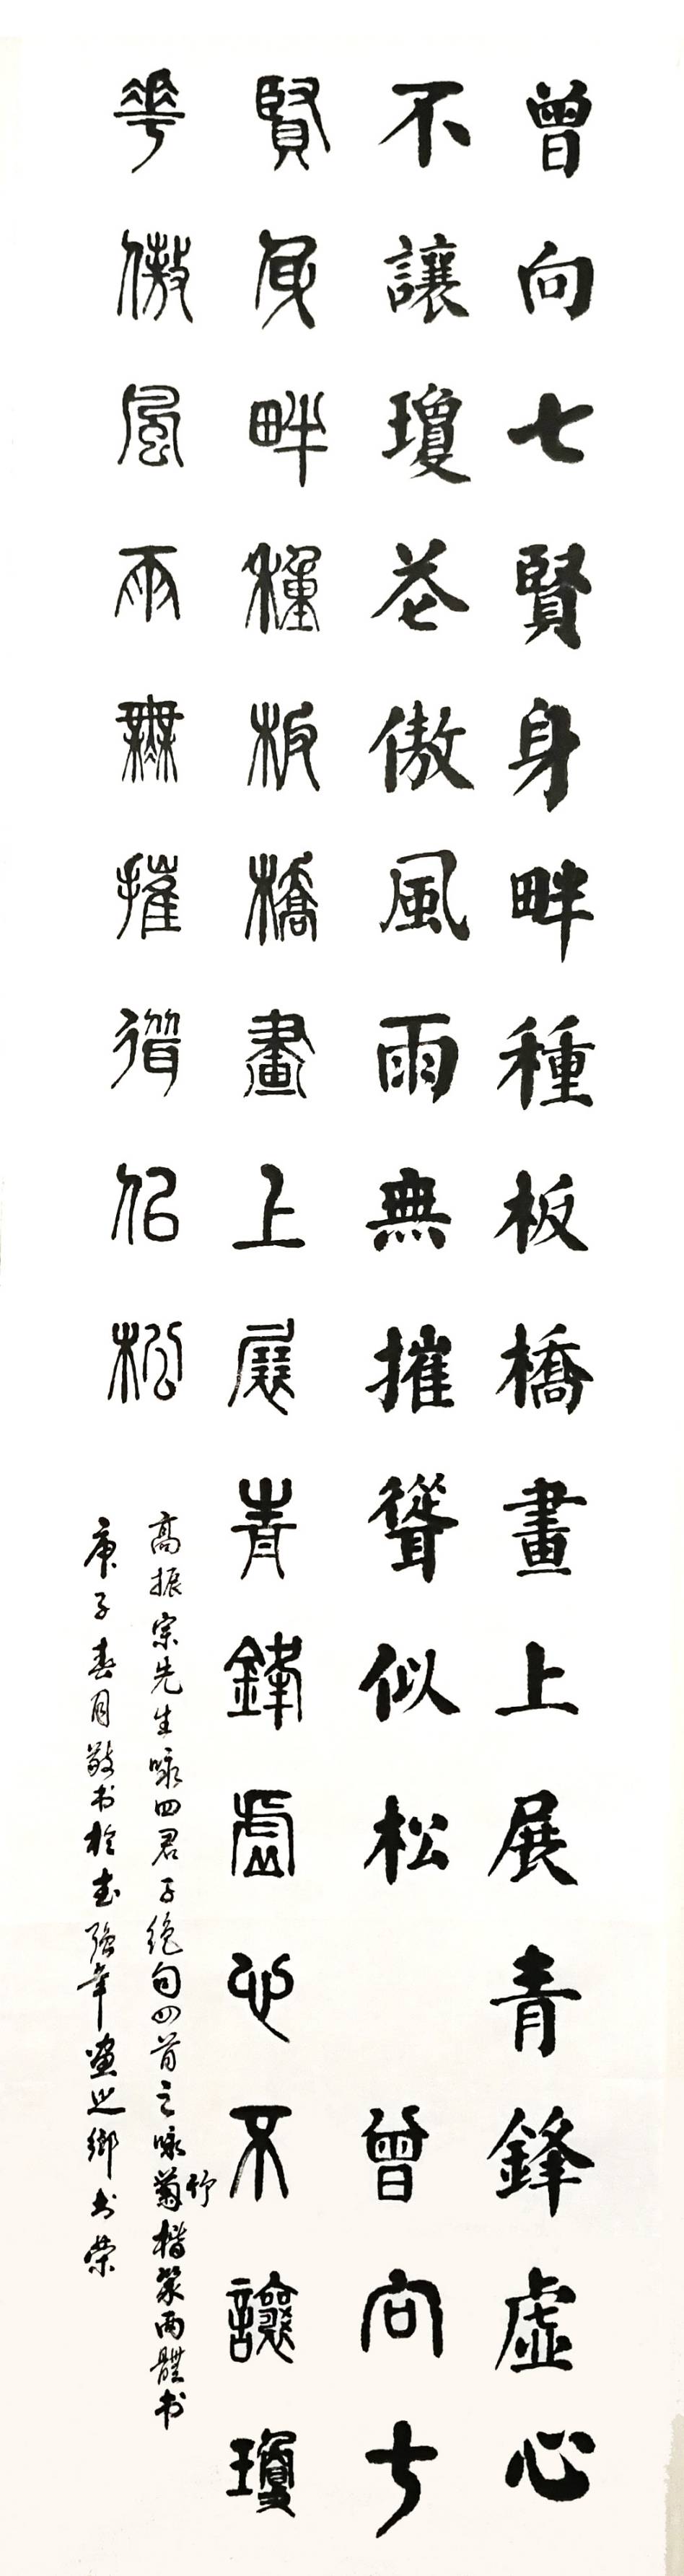 曾向七賢身畔種板橋畫上展青鋒虛心
不讓瓊花傲風雨無摧聳似松 曾向七
賢身畔種板橋畫上展青鋒虛心不讓瓊
華傲風雨無摧聳佀松
高振宗先生咏四君子绝句四首之咏菊楷篆两體书
竹
庚子春月敬书於武强年畫之鄉书荣